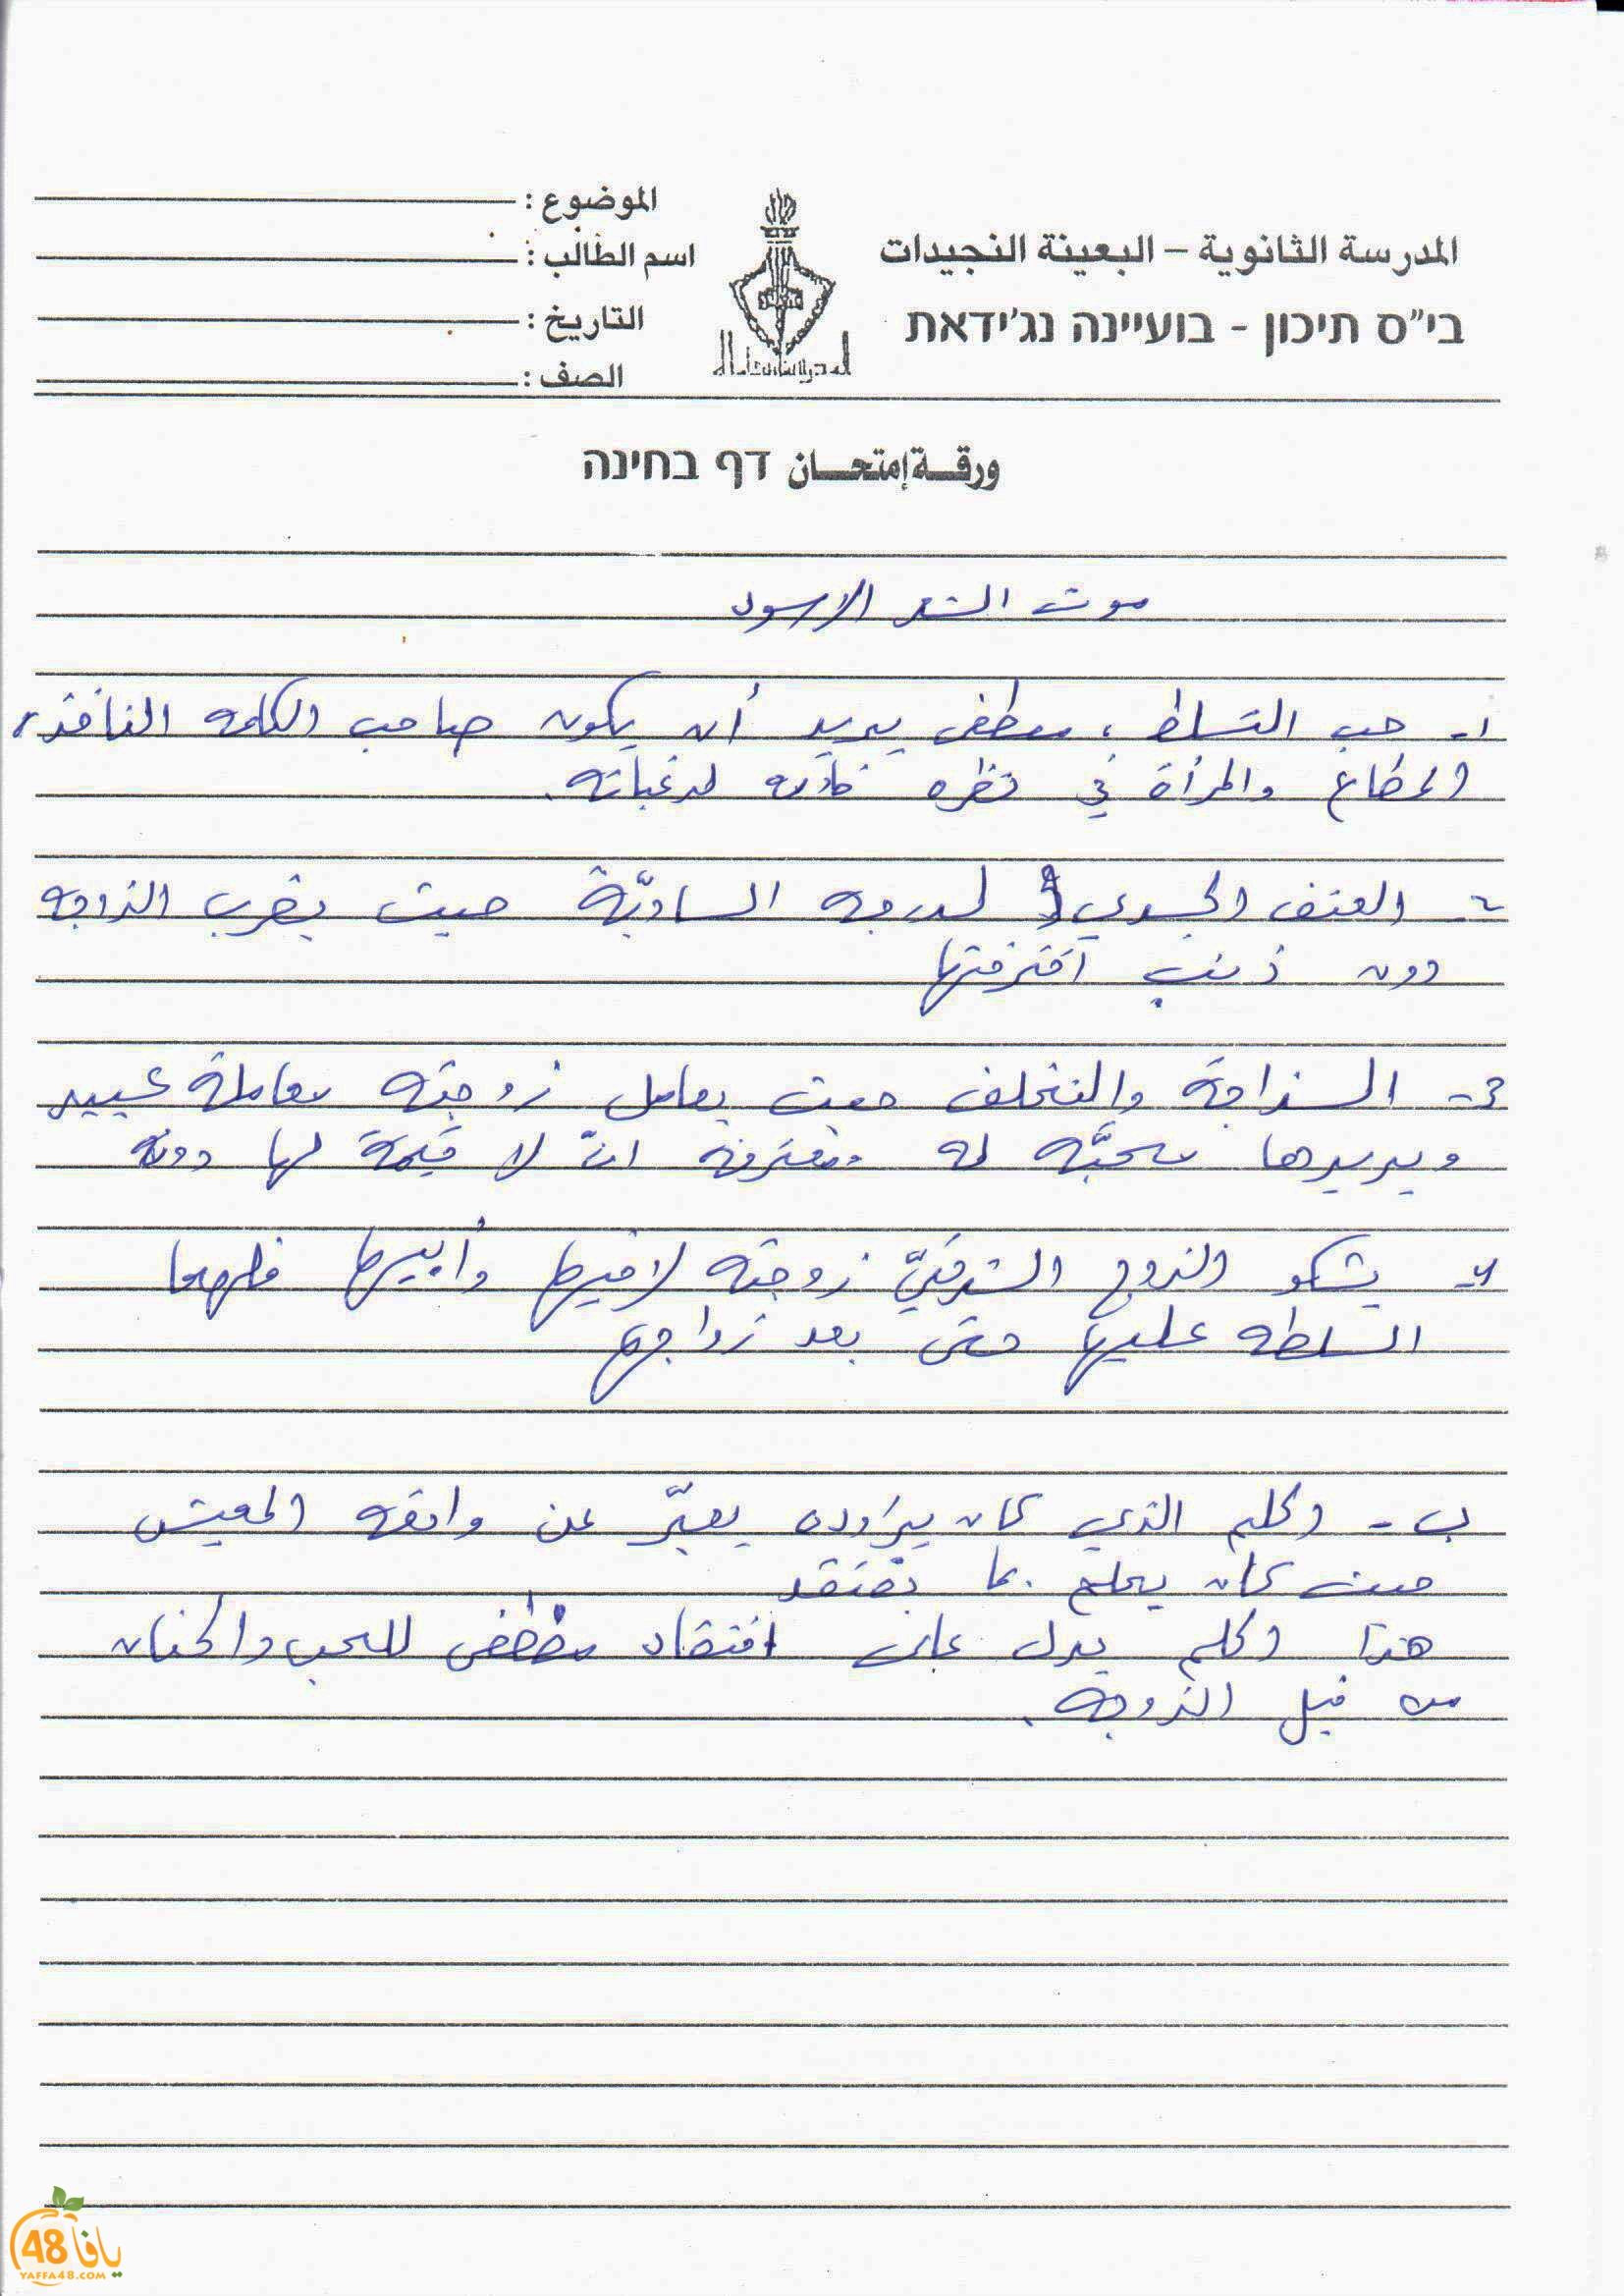 المدرسة الثانوية – البعينة النجيدات
בי"ס תיכון - בועיינה נג'ידאת
الموضوع :
اسم الطالب :
التاريخ :
الصف :
ورقة إمتحان דף בחינה
موت الشعر الاسود
١- حب التسلط ، مصطفى يريد أن يكون صاحب الكلمه النافذه
المطاع والمرأة في نظره خادمه لرغباته.
٢- العنف الجسدي لدرجه الساديّة حيث يضرب الزوجه
دون ذنب اقترفتها
3- السذاجة والتخلف حيث يعامل زوجته معاملة عبيد
ويريدها محبّه له ومعترفه انّ لا قيمة لها دونه
٤- يشكو الزوج الشرقيّ زوجته لاخيها وأبيها فلهما
السلطه عليها حتى بعد زواجها
ب - الحلم الذي كان يراوده يعبّر عن واقعه المعيش
حيث كان يحلم بما يفتقد
هذا الحلم يدل على افتقاد مصطفى للحب والحنان
من قبل الزوجه.
يافا 48
YAFFA48.COM